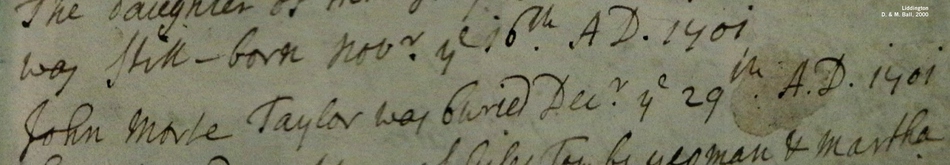 Liddington
D. & M. Ball, 2000
The daughter of
was still-born Novr. ye 16th. A D. 1701
John Morse Taylor was buried Decr. ye 29th. A.D. 1701
yeoman & Martha